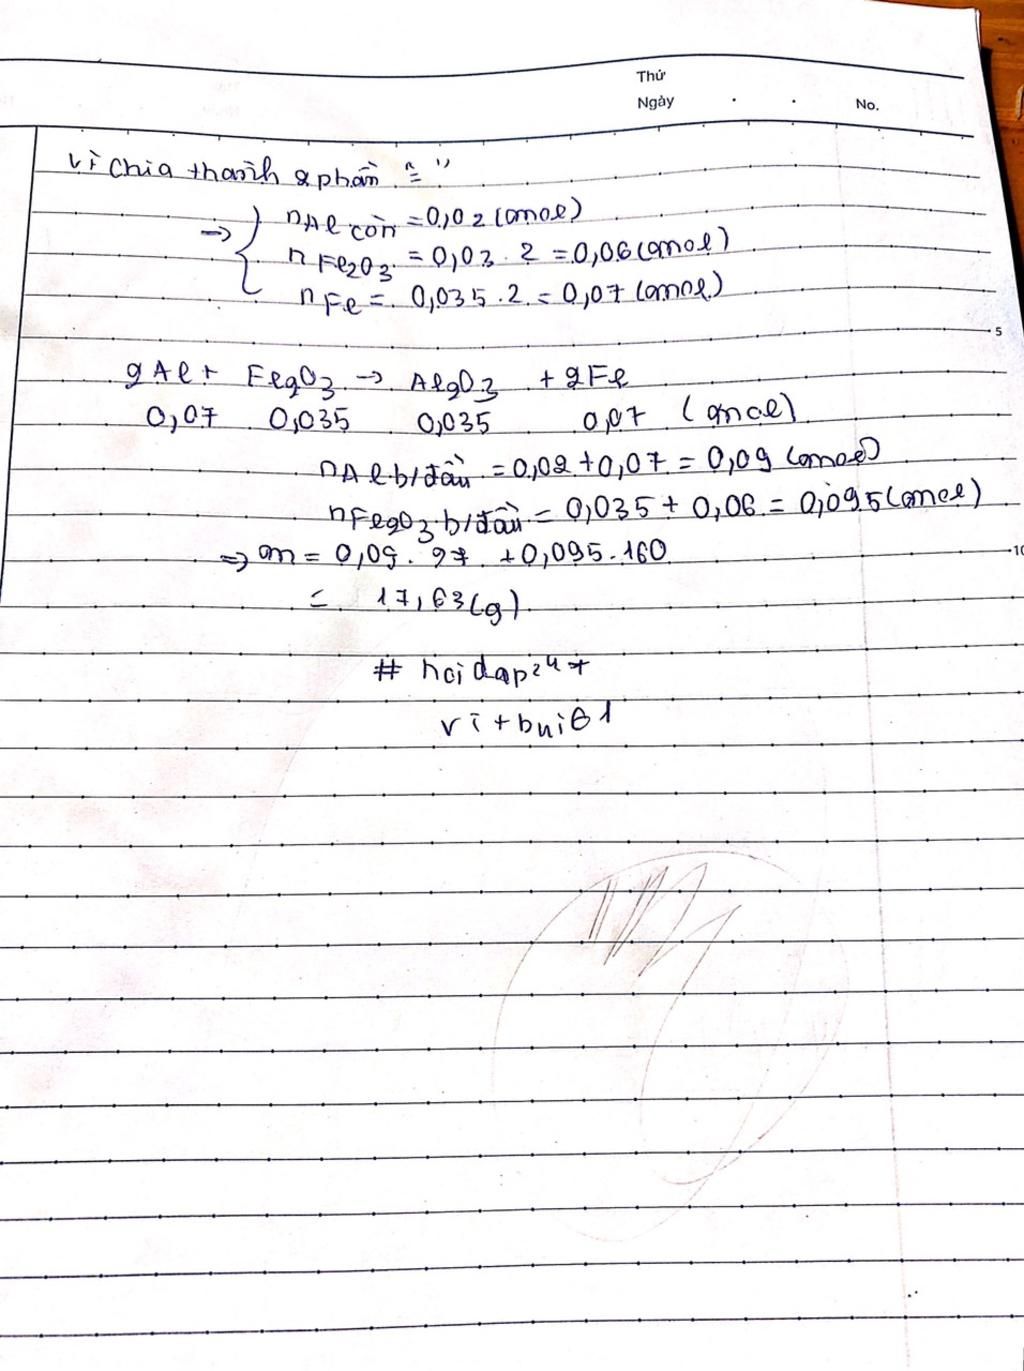 Thứ
Ngày . . No.
Vì chia thành 2 phần "="
=> { nAl còn = 0,02 (mol)
nFe2O3 = 0,03 . 2 = 0,06 (mol)
nFe = 0,035 . 2 = 0,07 (mol)
5
2Al + Fe2O3 -> Al2O3 + 2Fe
0,07 0,035 0,035 0,07 (mol)
nAl b/đầu = 0,02 + 0,07 = 0,09 (mol)
nFe2O3 b/đầu = 0,035 + 0,06 = 0,095 (mol)
=> m = 0,09 . 27 + 0,095 . 160
10
= 17,63 (g)
# hoidap247
vitbui61